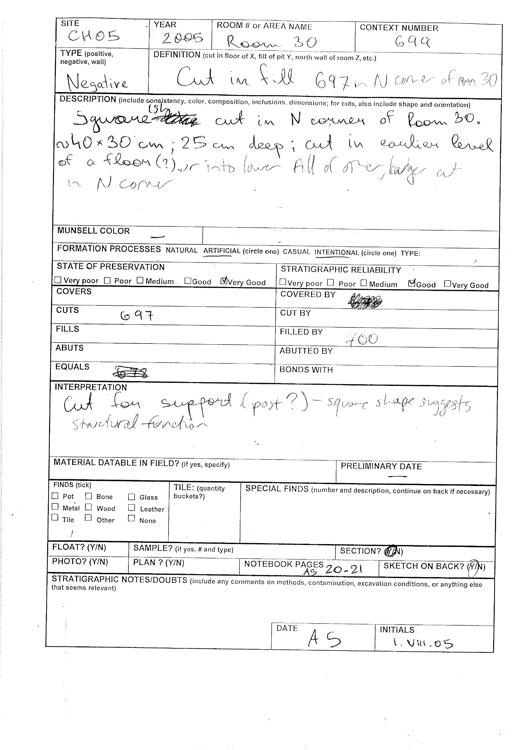 SITE YEAR ROOM # or AREA NAME CONTEXT NUMBER
CH05 2005 Room 30 699
TYPE (positive, negative, wall) DEFINITION (cut in floor of X, fill of pit Y, north wall of room Z, etc.)
Negative Cut in fill 697 in N corner of Room 30
DESCRIPTION (include consistency, color, composition, inclusions, dimensions; for cuts, also include shape and orientation)
Square(ish) cut in N corner of Room 30.
~40 x 30 cm; 25 cm deep; cut in earlier level
of a floor(?), or into lower fill of other, larger cut
in N corner
MUNSELL COLOR —
FORMATION PROCESSES NATURAL ARTIFICIAL (circle one) CASUAL INTENTIONAL (circle one) TYPE:
STATE OF PRESERVATION STRATIGRAPHIC RELIABILITY
☐Very poor ☐Poor ☐Medium ☐Good ☑Very Good ☐Very poor ☐Poor ☐Medium ☑Good ☐Very Good
COVERS COVERED BY
CUTS 697 CUT BY
FILLS FILLED BY 700
ABUTS ABUTTED BY
EQUALS BONDS WITH
INTERPRETATION
Cut for support (post?) – square shape suggests
structural function
MATERIAL DATABLE IN FIELD? (if yes, specify) PRELIMINARY DATE
—
FINDS (tick) TILE: (quantity buckets?) SPECIAL FINDS (number and description, continue on back if necessary)
☐ Pot ☐ Bone ☐ Glass
☐ Metal ☐ Wood ☐ Leather
☐ Tile ☐ Other ☐ None
FLOAT? (Y/N) SAMPLE? (if yes, # and type) SECTION? (Y/N)
PHOTO? (Y/N) PLAN ? (Y/N) NOTEBOOK PAGES AS 20-21 SKETCH ON BACK? (Y/N)
STRATIGRAPHIC NOTES/DOUBTS (include any comments on methods, contamination, excavation conditions, or anything else
that seems relevant)
DATE INITIALS
AS 1.VIII.05